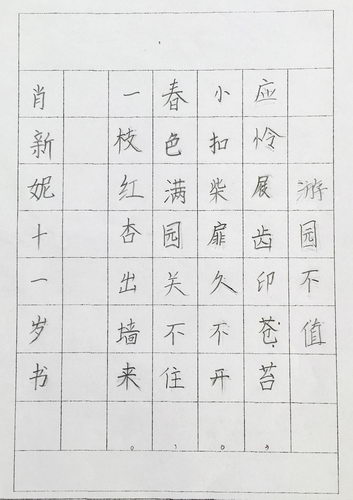 游园不值
应怜展齿印苍苔,
小扣柴扉久不开。
春色满园关不住,
一枝红杏出墙来。
肖新妮十一岁书